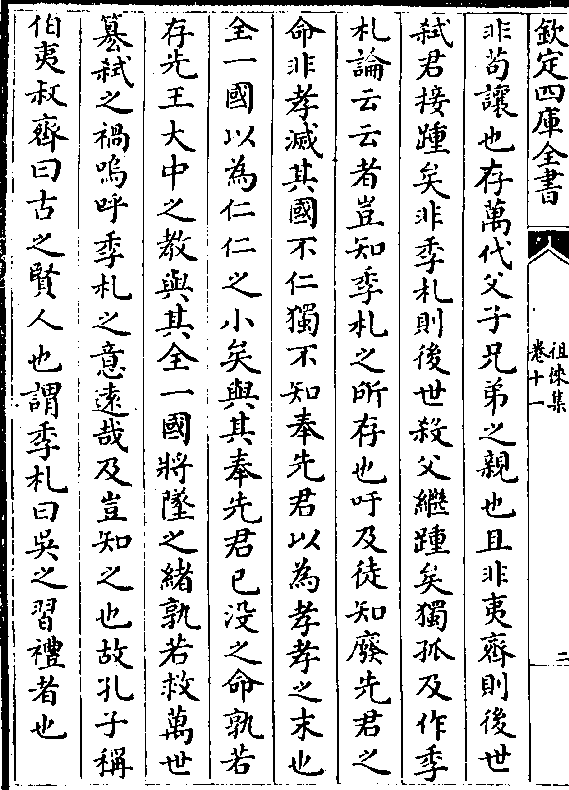 欽定四庫全書
徂徠集
卷十一
二
非苟讓也存萬代父子兄弟之親也且非夷齊則後世
弑君接踵矣非季札則後世殺父繼踵矣獨孤及作季
札論云云者豈知季札之所存也吁及徒知廢先君之
命非孝滅其國不仁獨不知奉先君以為孝孝之末也
全一國以為仁仁之小矣與其奉先君已没之命孰若
存先王大中之教與其全一國將墜之緒孰若救萬世
簒弑之禍嗚呼季札之意遠哉及豈知之也故孔子稱
伯夷叔齊曰古之賢人也謂季札曰吳之習禮者也